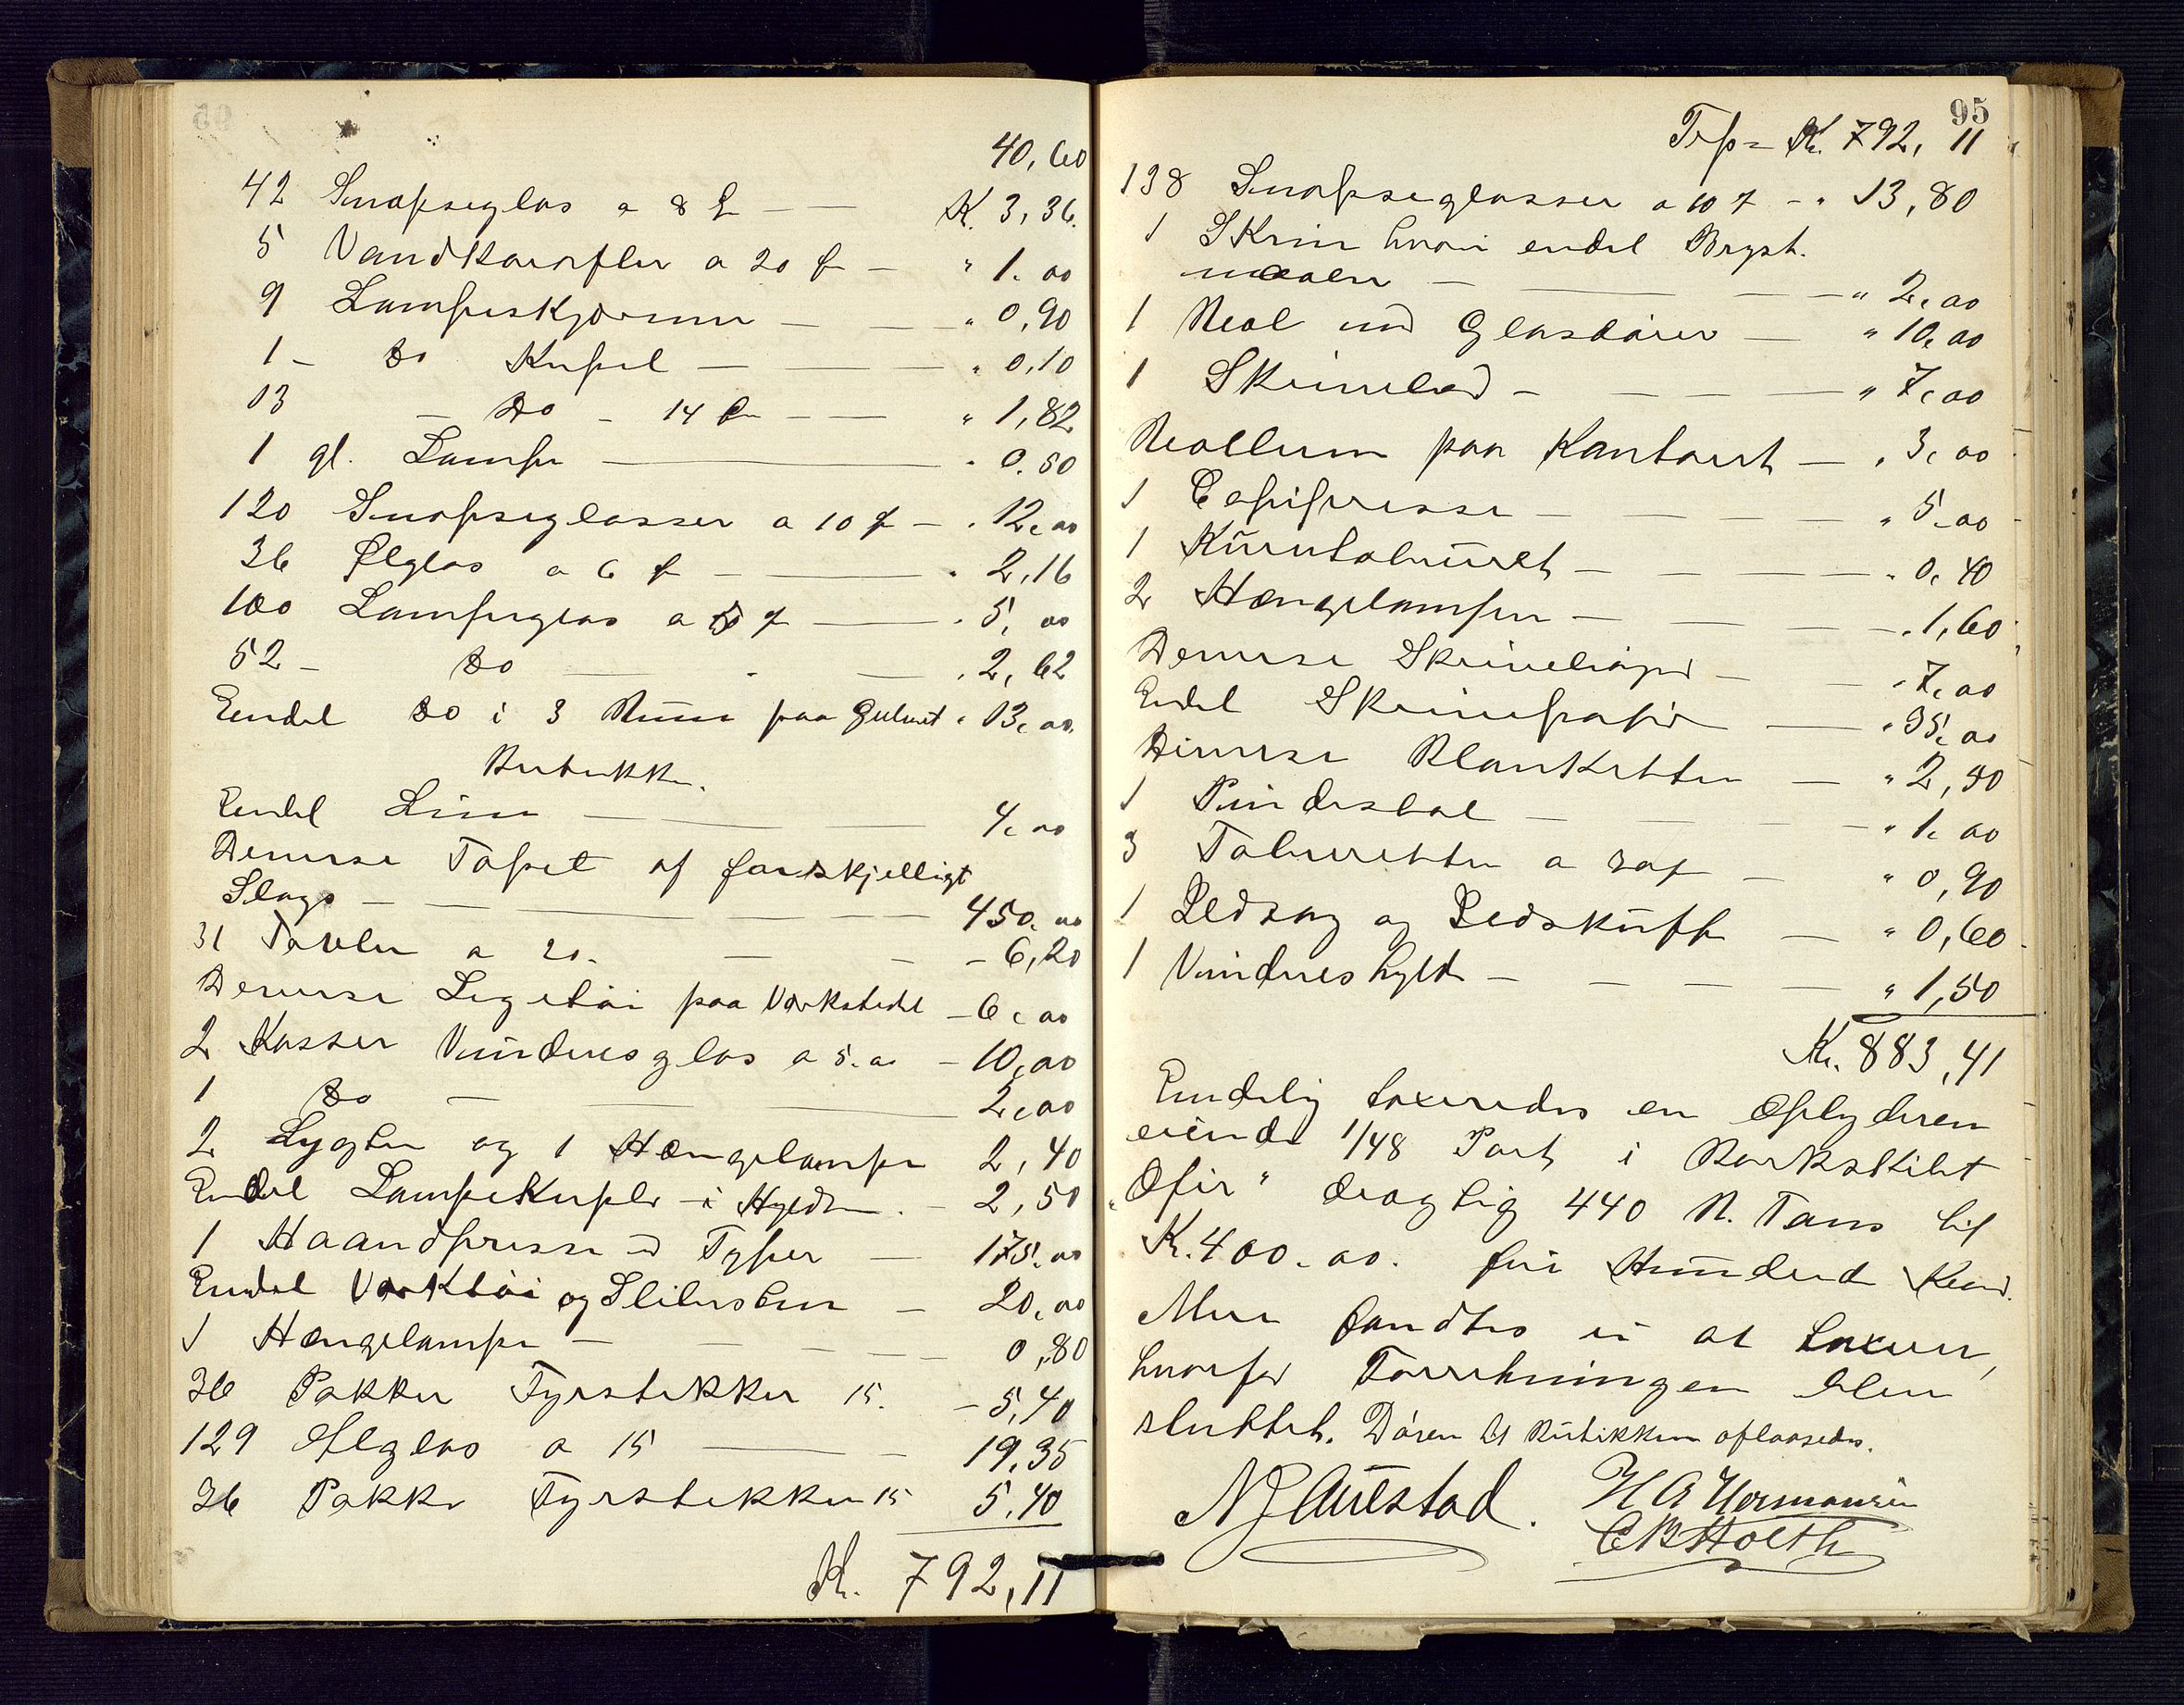 40,60
42 Snapseglas a 8 f — — K. 3,36.
5 Vandkarafler a 20 f — " 1.00
9 Lampeskjærme — — " 0,90
1 - Do Kupel — — — " 0,10
13 — Do - 14 f — — " 1,82
1 gl. Lampe — " 0.50
120 Snapseglasser a 10 f — " 12,00
36 Ølglas a 6 f — — " 2,16
100 Lampeglas a 5 f — " 5,00
52 — Do — — " 2,62
Endel Do i 3 Rum paa Gulvet " 13,00
Butikken.
Endel Lim — — — 4,00
Diverse Tapet af forskjelligt
Slags — — — — 450,00
31 Tavler a 20. — — - 6,20
Diverse Legetøi paa Værkstedet - 6,00
2 Kasser Vinduesglas a 5.00 - 10,00
1 Do — — 2,00
2 Lygter og 1 Hængelampe 2,40
Endel Lampekupler i Hylden. - 2,50
1 Haandpresse m Typer — 175.00
Endel Værktøi og Slibesten — 20,00
1 Hængelampe — — — 0,80
36 Pakker Fyrstikker 15. - 5,40
129 Ølglas a 15 — — 19,35
36 Pakker Fyrstikker 15 5,40
Kr. 792,11
95
Trsp = Kr. 792,11
138 Snapseglasser a 10 f - " 13,80
1 Skrin hvori endel Bryst.
— — — " 2,00
1 Reol med Glasdører — " 10,00
1 Skrivebord — — — " 7,00
Reollerne paa Kontoret — " 3,00
1 Copipresse — — — " 5,00
1 — — — " 0,40
2 Hængelamper — — — " 1,60
Diverse Skrivebøger — — " 7,00
Endel Skrivepapir — " 35,00
Diverse Blanketter — " 2,50
1 Pindestol — — — " 1,00
3 Taburetter a 30 f — " 0,90
1 Ildtang og Ildskuffe — " 0,60
1 Vindueshylde — — — " 1,50
Kr. 883,41
Endelig taxeredes en Opbyderen
eiende 1/48 Part i Barkskibet
"Ofir" drægtig 440 R. Tons til
K. 400.00. fire Hundrede Kroner.
Mere fandtes ei at taxere,
hvorfor Forretningen blev
sluttet. Døren til Butikken aflaasedes.
N J Auestad. H A Hermansen
C B Holth